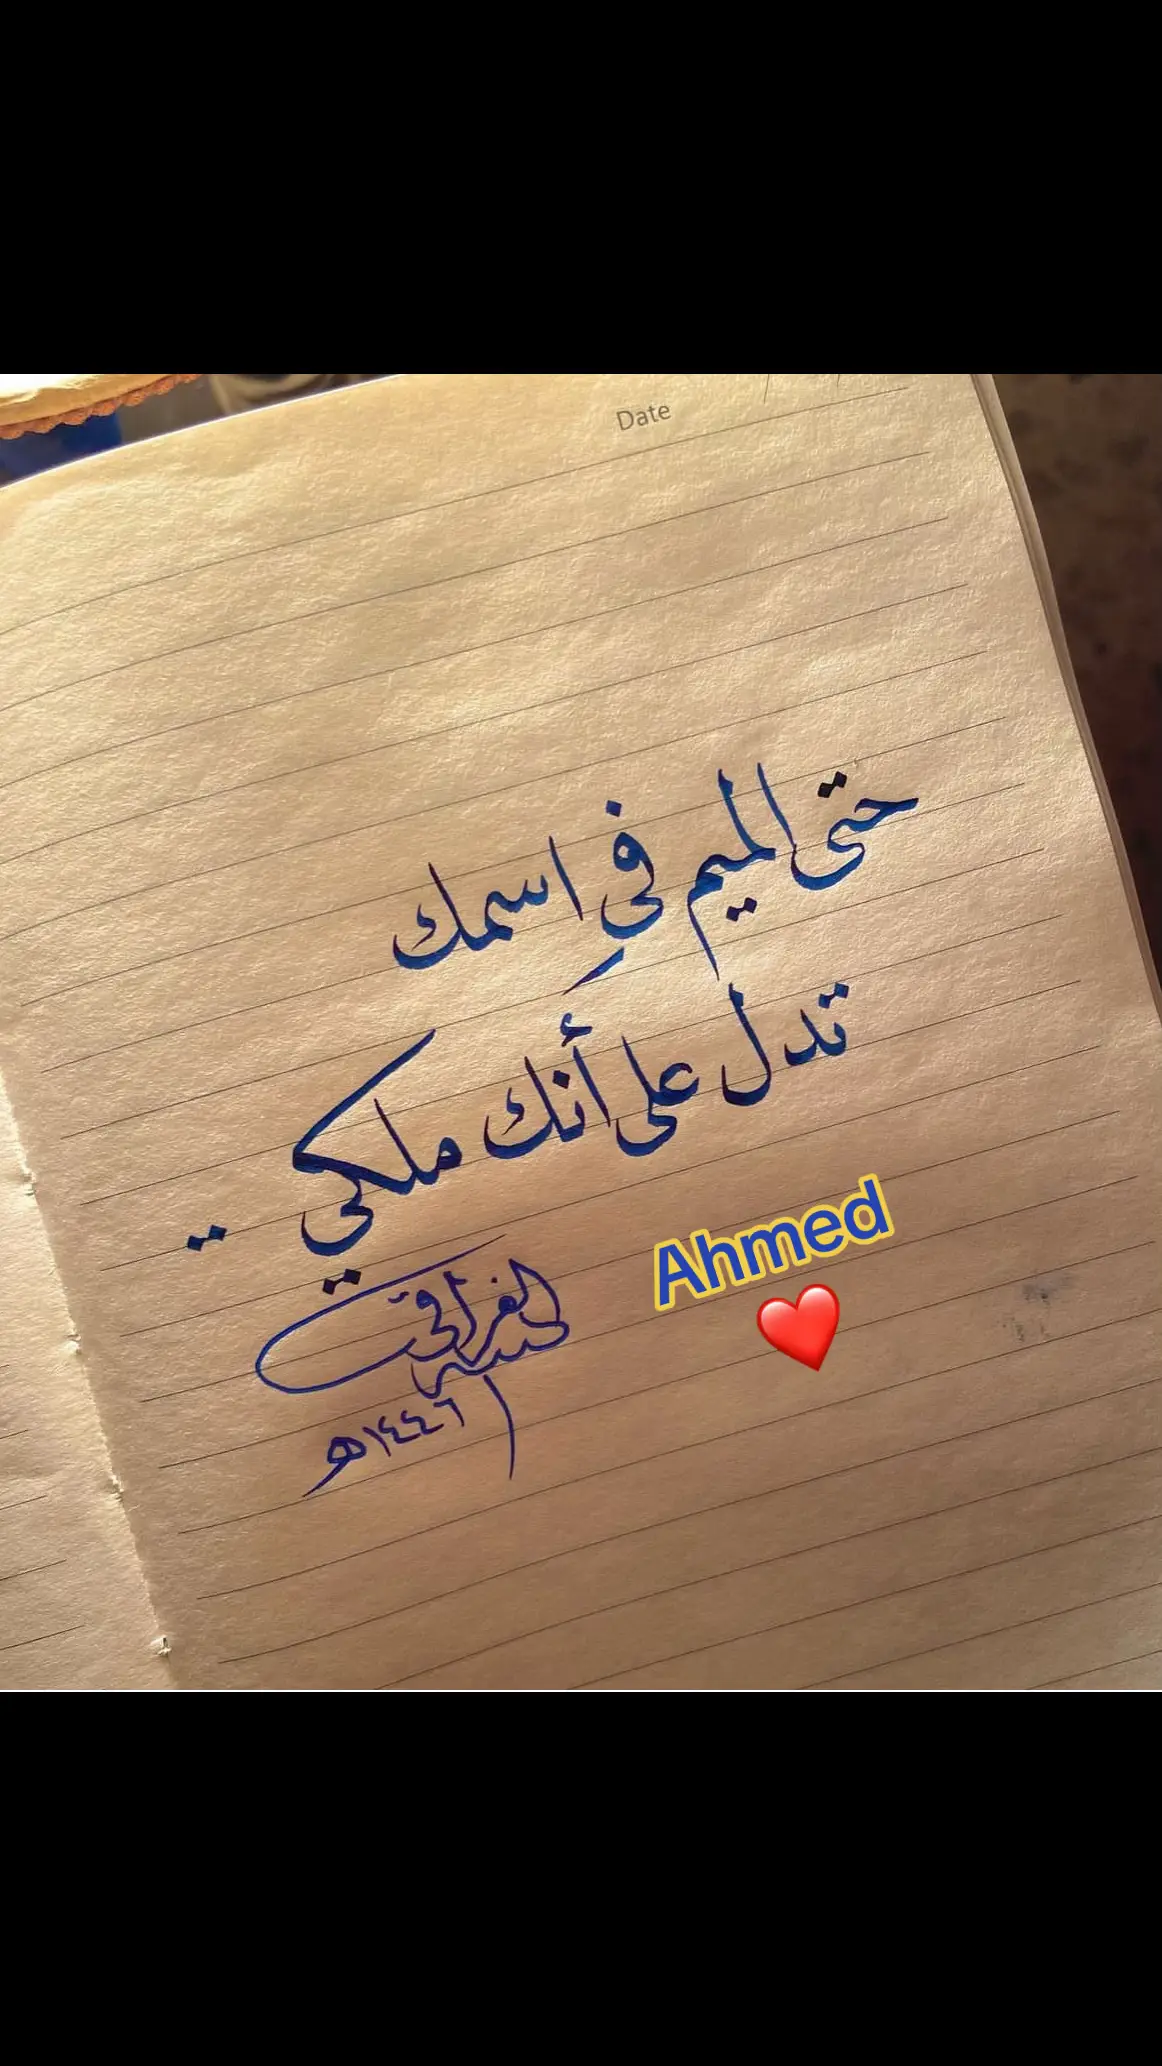 Date
حتى الميم في اسمك
تدل على أنك ملكي ..
Ahmed
١٤٤٦هـ